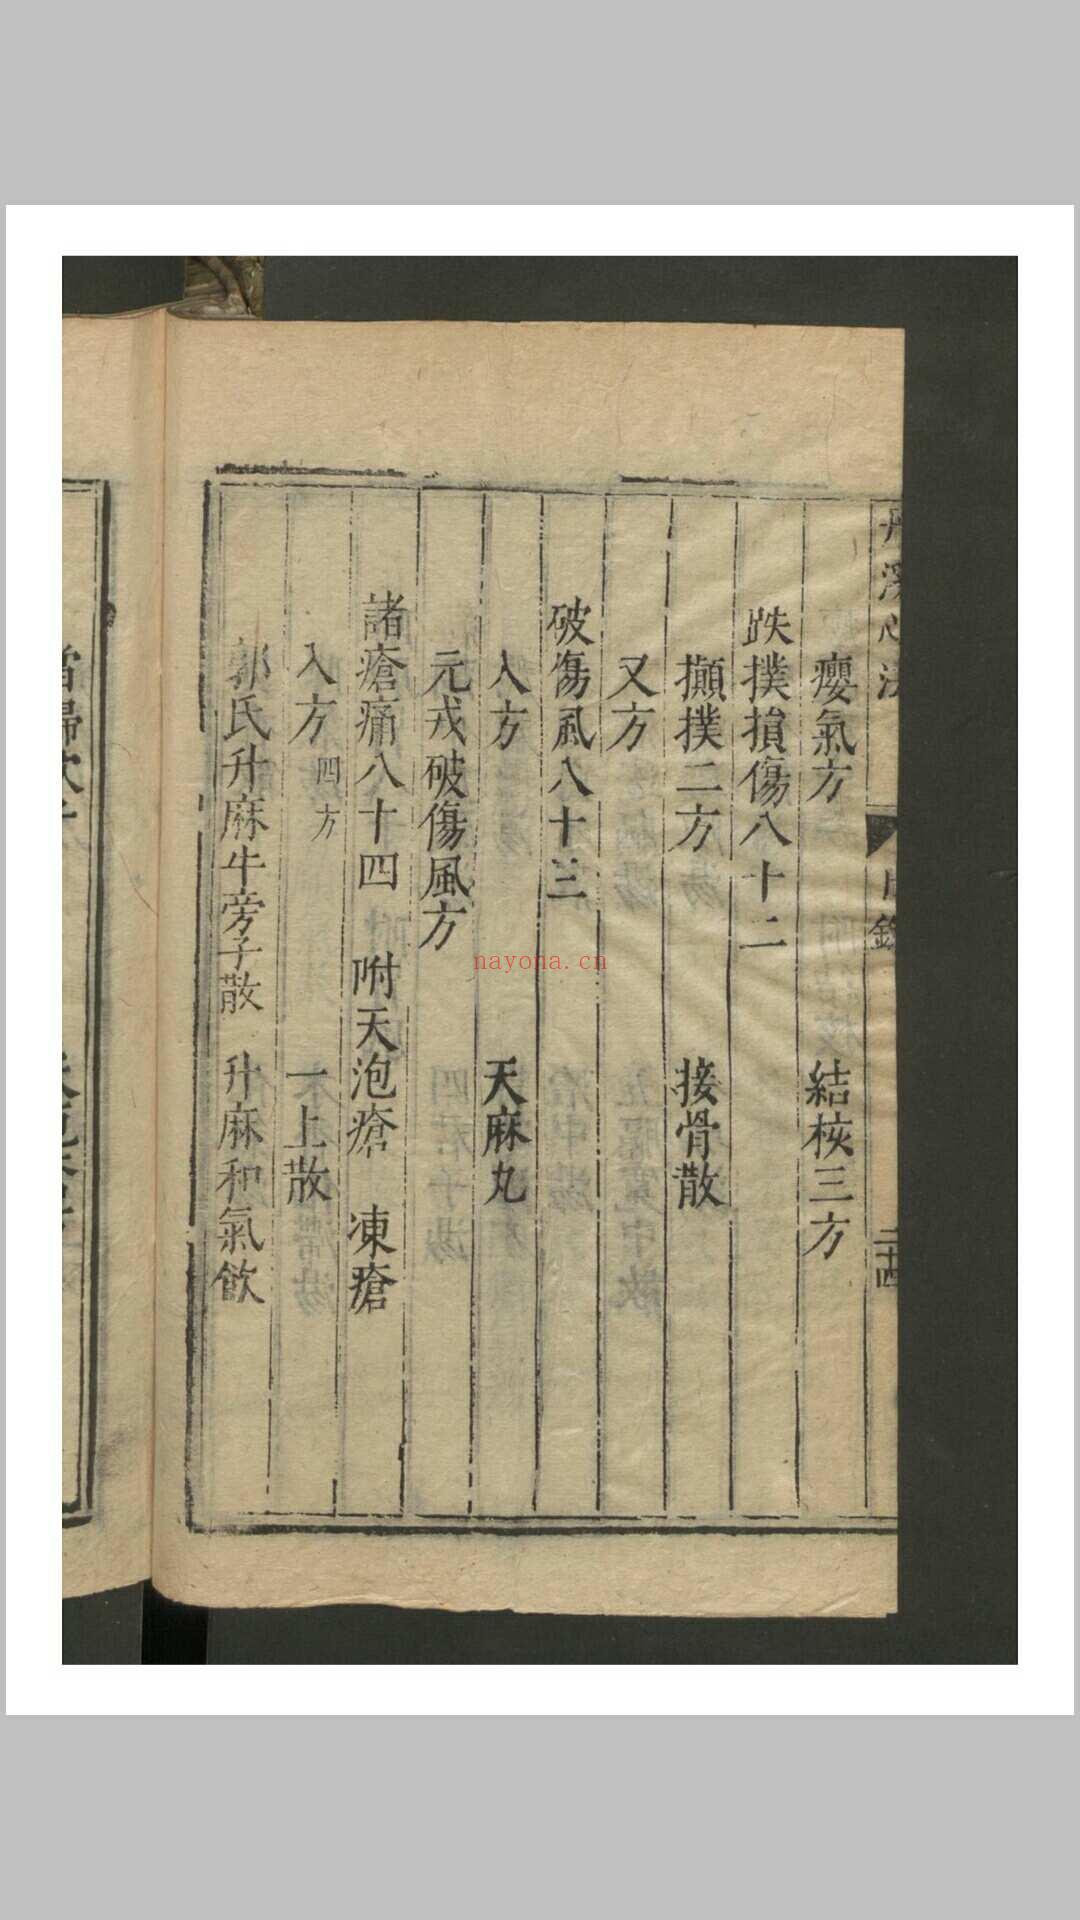 丹溪心法 目錄 二十四
癭氣方 結核三方
跌撲損傷八十二
攧撲二方 接骨散
又方
破傷風八十三
入方 天麻丸
元戎破傷風方
諸瘡痛八十四 附天泡瘡 凍瘡
入方四方 一上散
郭氏升麻牛旁子散 升麻和氣飲
nayona.cn